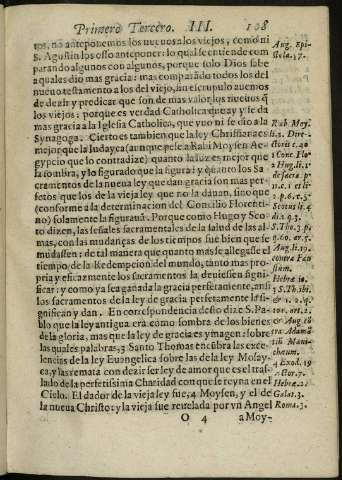 Primero Tercero. III. 108
tos, no anteponemos los nueuos a los viejos, como ni
S. Agustin los osso anteponer: lo qual se entiende com
parando algunos con algunos, porque solo Dios sabe
a quales dio mas gracia: mas comparado todos los del
nueuo testamento a los del viejo, sin escrupulo auemos
de dezir y predicar que son de mas valor los nueuos q̃
los viejos: porque es verdad Catholica que ay y se da
mas gracia a la Iglesia Catholica, que vuo ni se dio a la
Synagoga. Cierto es tambien que la ley Christiana es
mejor que la Iudayca (aunque pese a Rabi Moysen Ae-
gypcio que lo contradize) quanto la luz es mejor que
la sombra, y lo figurado que la figura: y quanto los Sa
cramentos de la nueua ley que dan gracia son mas per-
fetos que los de la vieja ley que no la dauan, sino que
(conforme a la determinacion del Concilio Florenti-
no) solamente la figurauã. Porque como Hugo y Sco-
to dizen, las señales sacramentales de la salud de las al-
mas, con las mudanças de los tiempos fue bien que se
mudassen: de tal manera que quanto mas se allegasse el
tiempo de la Redempcion del mundo, tanto mas pro-
pria y eficazmente los sacramentos la deuiessen signi-
ficar: y como ya sea ganada la gracia perfetamente, ansi
los sacramentos de la ley de gracia perfetamente la si-
gnifican y dan. En correspondencia desto dize S. Pa-
blo que la ley antigua era como sombra de los bienes
de la gloria, mas que la ley de gracia es ymagen: sobre
las quales palabras, 3 Santo Thomas encubre las exce-
lencias de la ley Euangelica sobre las de la ley Mosay-
ca, y las remata con dezir ser ley de amor que es el tras-
lado de la perfetissima Charidad con que se reyna en el
Cielo. El dador de la vieja ley fue, 4 Moysen, y el de
la nueua Christo: y la vieja fue reuelada por vn Angel
O 4 a Moy-
Aug. Epi-
stola. 57.
Rab. Moy.
li. 2. Dire-
ctoris c. 40
1 Conc. Flo
2 Hug. li. 1.
de sacra. p.
11. c. 1 et li.
2. p. 6. c. 3.
Scotus li. 4
d. 1. q. 3.
S. Tho. 3. p.
q. 60. ar. 5.
Aug. li. 19.
contra Fau
stum.
Hebre. 10
3 S. Th. ibi.
& 1. 2. q.
107. art. 2.
& Aug. cõ
tra Adamã
tiũ Mani-
cheum.
4 Exod. 19
Actor. 7.
Hebre. 2.
Galat. 3.
Roma. 3.